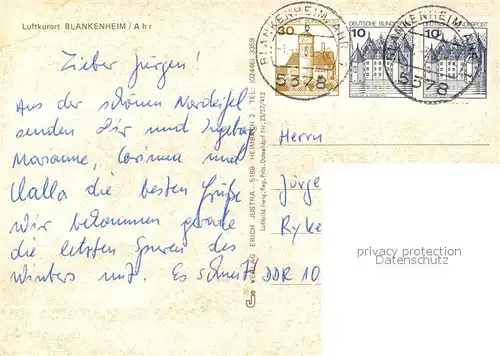 Luftkurort BLANKENHEIM / Ahr
Lieber Jürgen!
Aus der schönen Nordeifel
senden Dir und Ingeborg
Marianne, Corinna und
Kalla die besten Grüße
Wir bekommen gerade
die letzten Spuren des
Winters mit. Es schneit
VERLAG ERICH JUSTRA 5169 HEIMBACH 2 TEL: (02446) 3359
Luftbild freig. Reg. Präs. Düsseldorf Nr. 23/57/412
30
DEUTSCHE BUNDESPOST
10
DEUTSCHE BUNDESPOST
10
BLANKENHEIM, AHR 1
5378
BLANKENHEIM, AHR 1
5378
Herrn
Jürge
Ryke
DDR 10
privacy protection
Datenschutz